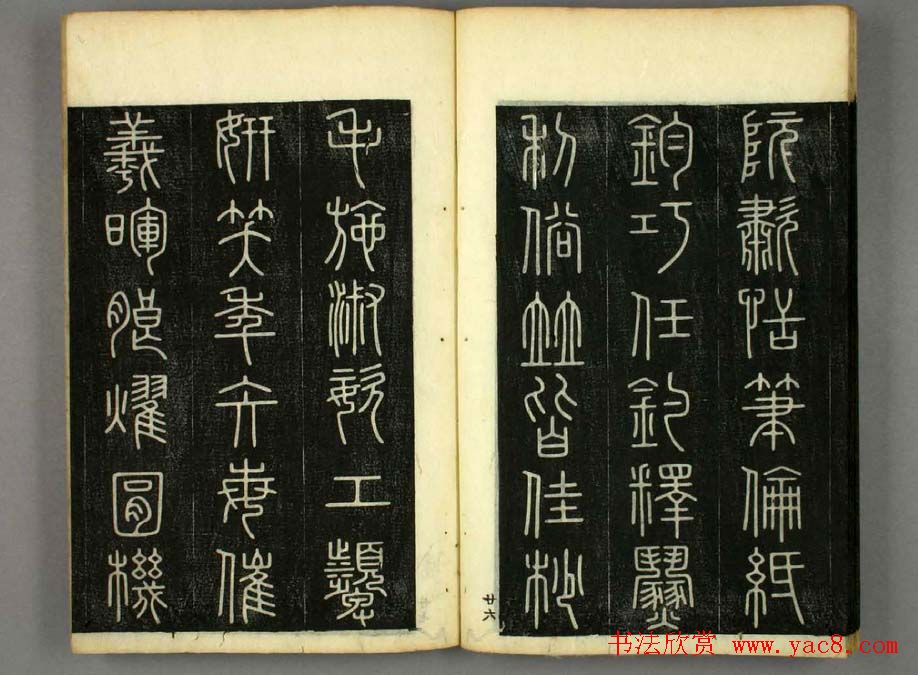 阮歗恬筆倫紙
鈞巧任釣釋
利俗竝皆佳妙
毛施淑姿工顰
妍笑年矢每催
羲暉朗燿圓機
廿六
书法欣赏 www.yac8.com